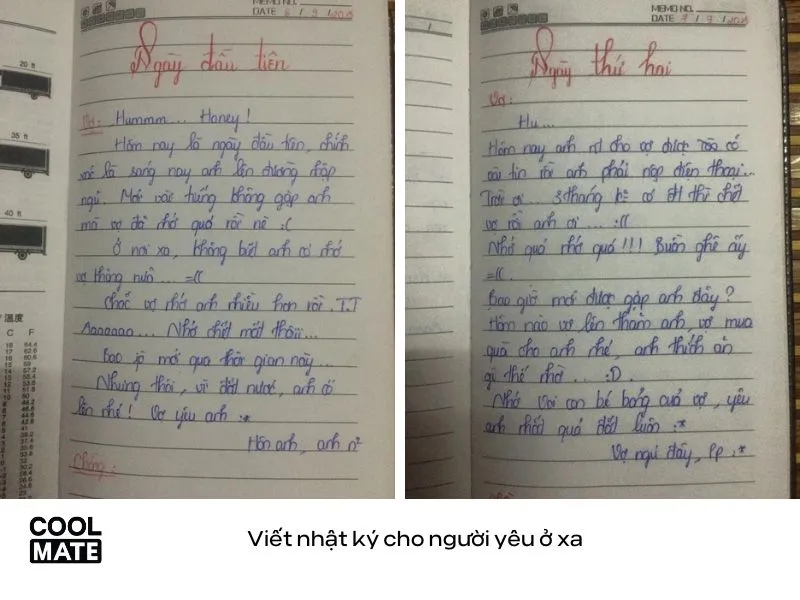 MEMO NO.
DATE 6 / 9 / 2015
Ngày đầu tiên
Vợ: Hummm... Honey!
Hôm nay là ngày đầu tiên, chính
xác là sáng nay anh lên đường nhập
ngũ. Mới vài tiếng không gặp anh
mà vợ đã nhớ quá rồi nè :(
Ở nơi xa, không biết anh có nhớ
vợ không nữa... =((
Chắc vợ nhớ anh nhiều hơn rồi. T.T
Aaaaaaa... Nhớ chết mất thôii...
Bao giờ mới qua thời gian này...
Nhưng thôi, vì đất nước, anh cố
lên nhé! Vợ yêu anh :*
Hôn anh, anh n²
Chồng:
20 ft
35 ft
40 ft
温度
C F
MEMO NO.
DATE 7 / 9 / 2015
Ngày thứ hai
Vợ:
Hu...
Hôm nay anh nt cho vợ được có
vài tin rồi anh phải nộp điện thoại...
Trời ơi... 3 tháng k có đt thì chết
vợ rồi anh ơi... :((
Nhớ quá nhớ quá!!! Buồn ghê ấy
=((.
Bao giờ mới được gặp anh đây?
Hôm nào vợ lên thăm anh, vợ mua
quà cho anh nhé, anh thích ăn
gì thế nhờ... :D.
Nhớ vòi con bé bỏng của vợ, yêu
anh nhất quả đất luôn :*
Vợ ngủ đây, Pp :*
COOL
MATE
Viết nhật ký cho người yêu ở xa